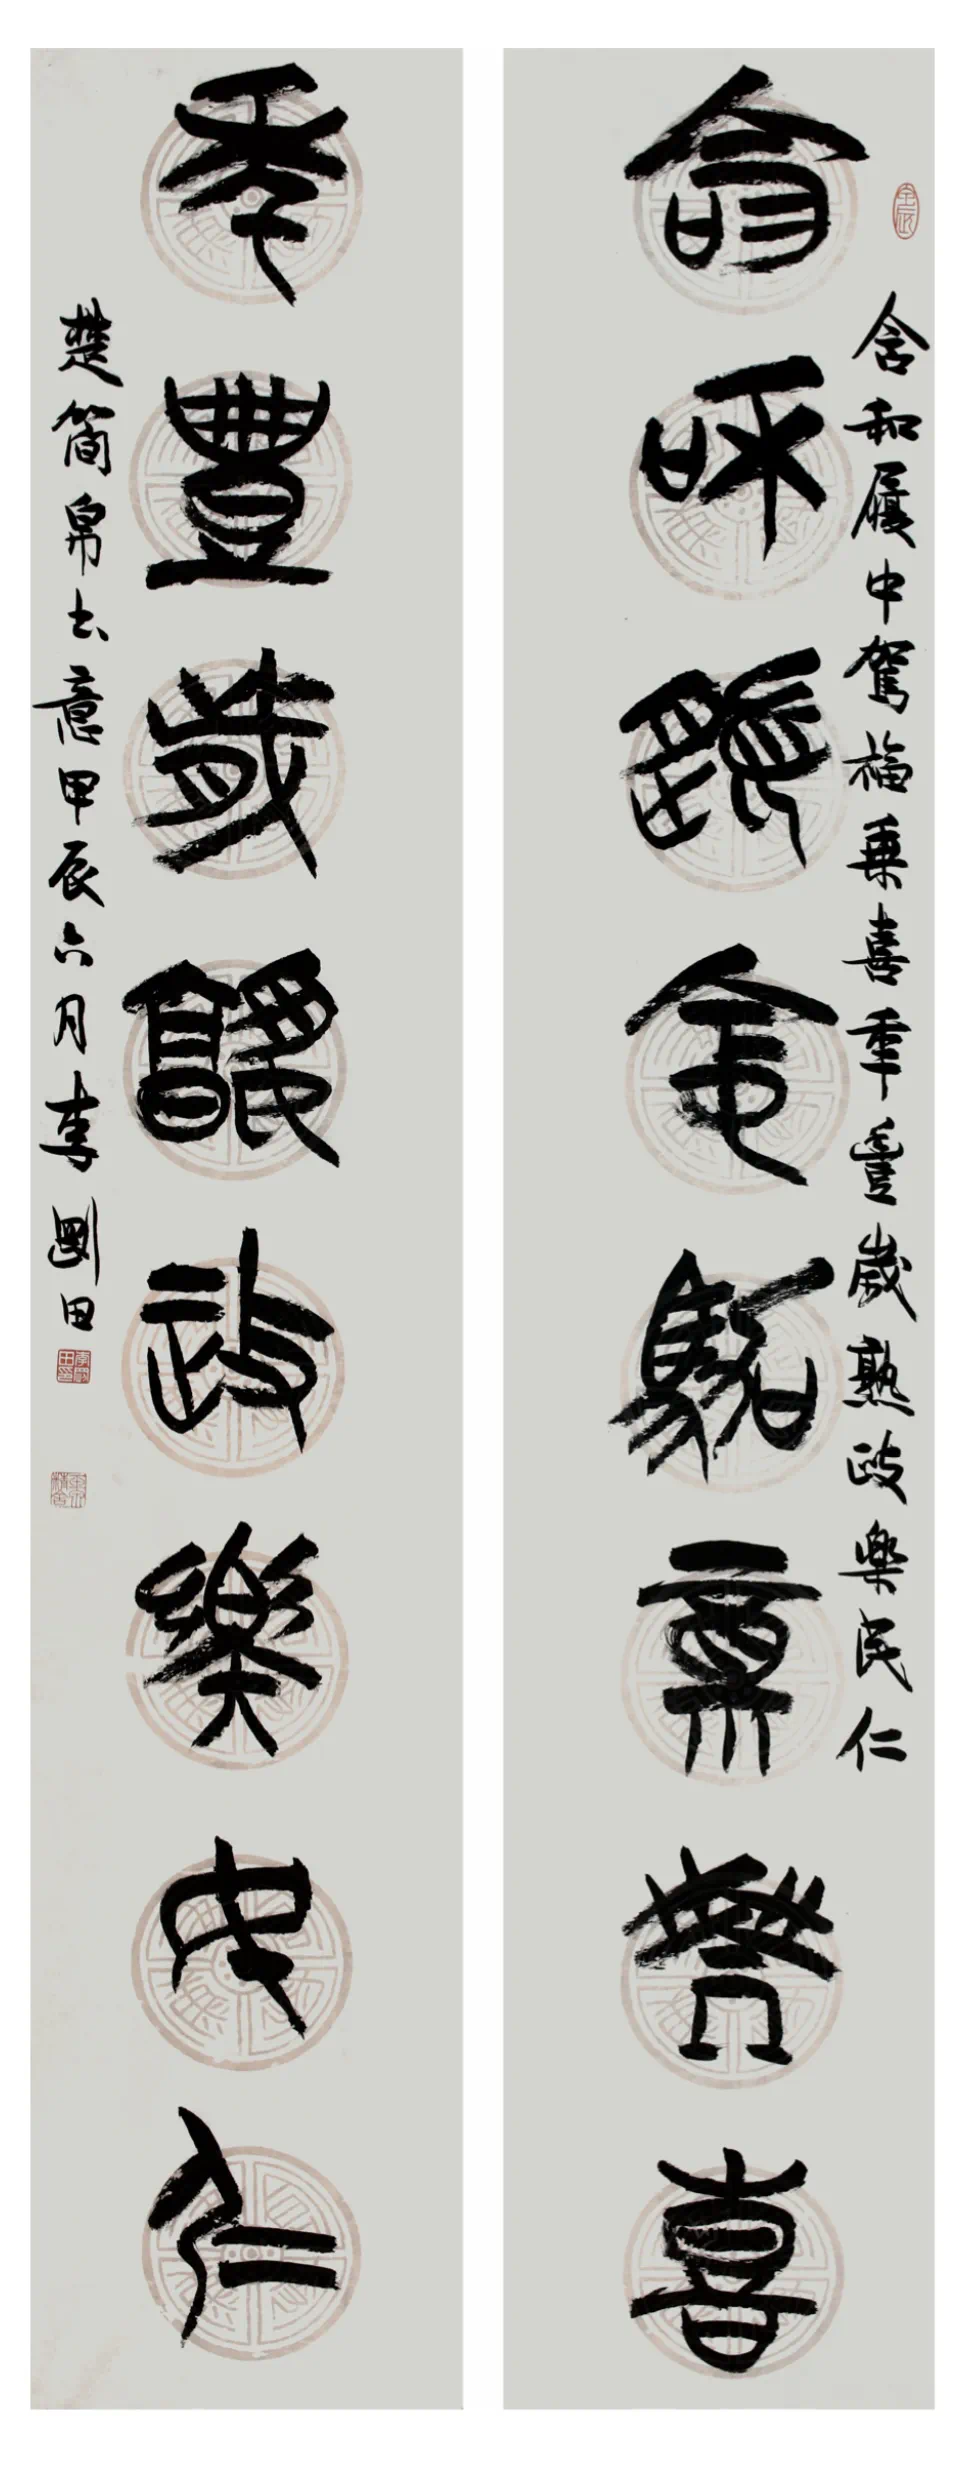 含和履中駕福乘喜年豐歲熟政樂民仁
含和履中駕福乘喜
年豐歲熟政樂民仁
楚簡帛书意甲辰六月李剛田